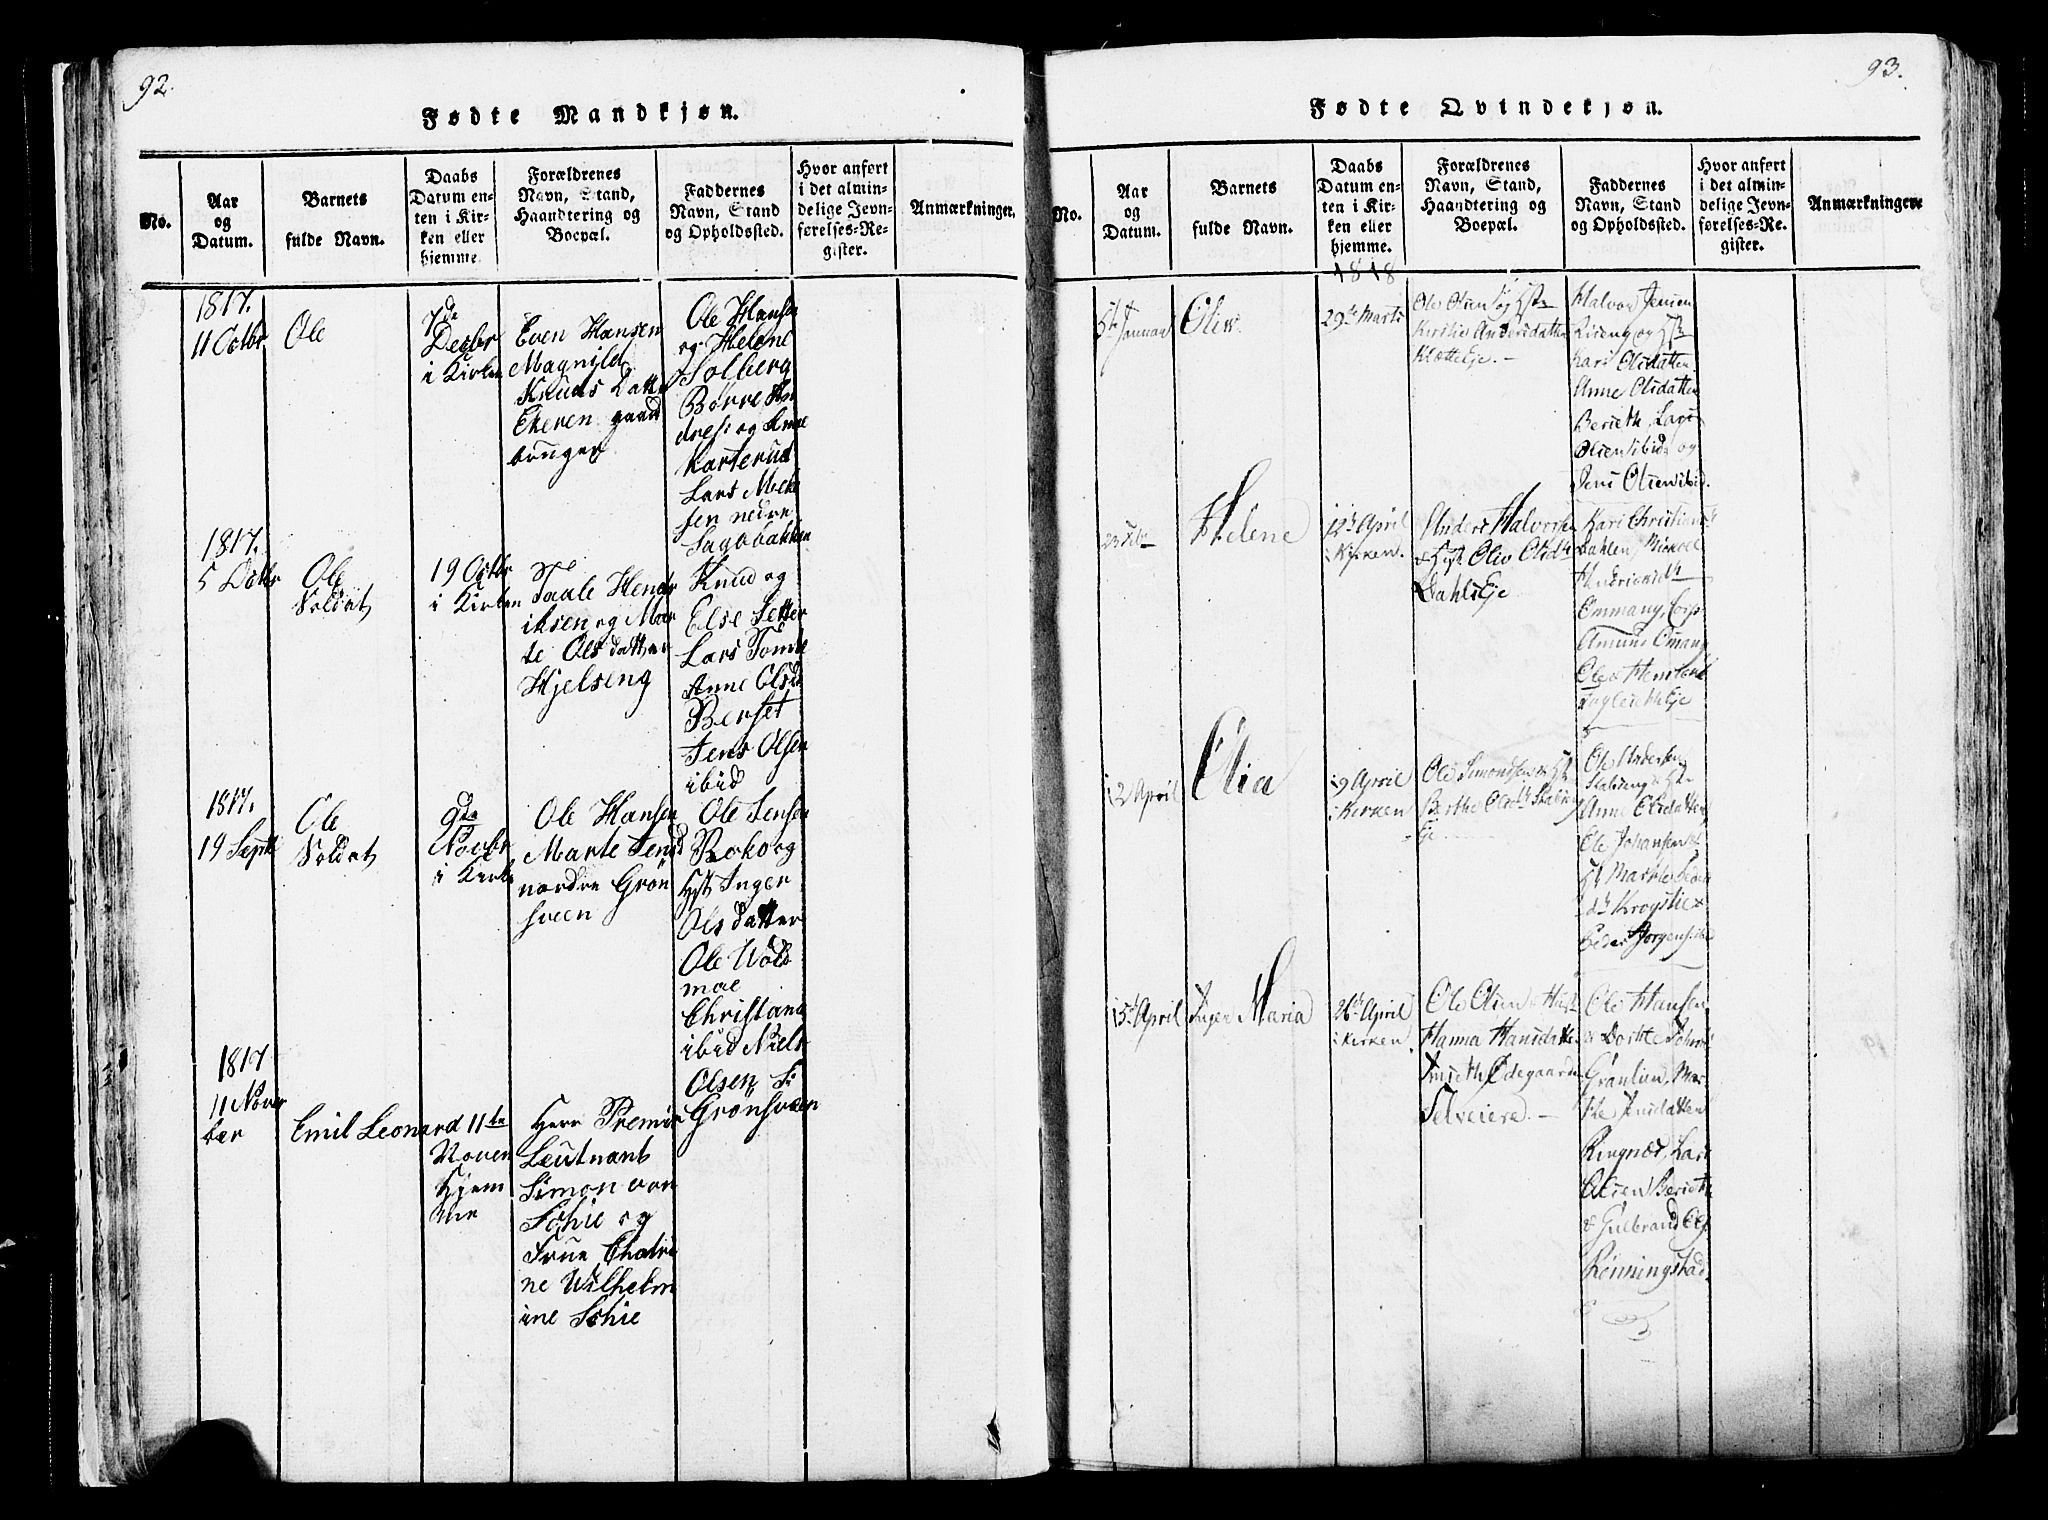 92.
Fødte Mandkjøn.
No.
Aar
og
Datum.
Barnets
fulde Navn.
Daabs
Datum en-
ten i Kir-
ken eller
hjemme.
Forældrenes
Navn, Stand,
Haandtering og
Boepæl.
Faddernes
Navn, Stand
og Opholdssted.
Hvor anført
i det almin-
delige Jevn-
førelses-Re-
gister.
Anmærkninger.
1817.
11 Octbr
Ole
7de
Decbr
i Kirken
Even Hansen
Magnild
Knuds Datter
Ekeren gaard
bruger
Ole Hansen
og Helene
Solberg
Börre An
dres: og Anne
Karterud
Lars Micke
sen nedre
Sagbakken
1817.
5 Octbr
Ole
Soldat
19 Octbr
i Kirken
Taale Hendr
iksen og Mar
te Olsdatter
Hjelseng
Knud og
Else Setter
Lars Tomte
Anne Olsd
Berset
Jens Olsen
ibid
1817.
19 Septbr
Ole
Soldat
9de
Novbr
i Kirke
Ole Hansen
Marte Jensd
nordre Grön
sveen
Ole Jensen
Roko og
Hst Inger
Olsdatter
Ole Wold
moe
Christiana
ibid Niels
Olsen S:
Grönsveen
1817
11 Novem
ber
Emil Leonard
11te
Noven
Hjem
me
Herr Premie
Leutnant
Simon von
Schie og
Frue Chatri
ne Wilhelm
ine Schie
93.
Fødte Qvindekjøn.
No.
Aar
og
Datum.
Barnets
fulde Navn.
Daabs
Datum en-
ten i Kir-
ken eller
hjemme.
Forældrenes
Navn, Stand,
Haandtering og
Boepæl.
Faddernes
Navn, Stand
og Opholdssted.
Hvor anført
i det almin-
delige Jevn-
førelses-Re-
gister.
Anmærkninger.
1818
Januar
Olea
29de Marts
Ole Olsen og Hst
Kirstie Andersdatter
Klætte Eje.
Halvor Jensen
Riseng og Hst
Kari Olsdatter
Anne Olsdatter
Berseth, Lars
Olsen ibid og
Jens Olsen ibid.
23 Febr
Helene
12te April
i Kirken.
Anders Halvorsen
Olea Olsdtr
Dahls Eje
Kari Christiansdtr
Dahlen, Mickel
Ommang, Corp
Amund Omang
Ole
12 April
Olia
19 April
i Kirken
Ole Simondsen & Hst
Berthe Olsdtr
Eje
Ole Anders
Anne Olsdatter
Ole Johansen &
Hst Marthe
Krogstie &
Peder Jorgens ibid
15de April
Inger Maria
26de April
i Kirken
Ole Olsen & Hust
Hanna Hansdatter
Ødegaarden
Selveiere.
Ole Hansen
& Dorthe
Granlien, Mar
the Jensdatter
Ringnæs, Lars
Olsen Berseth
& Gulbrand Ols
Rönningstad.